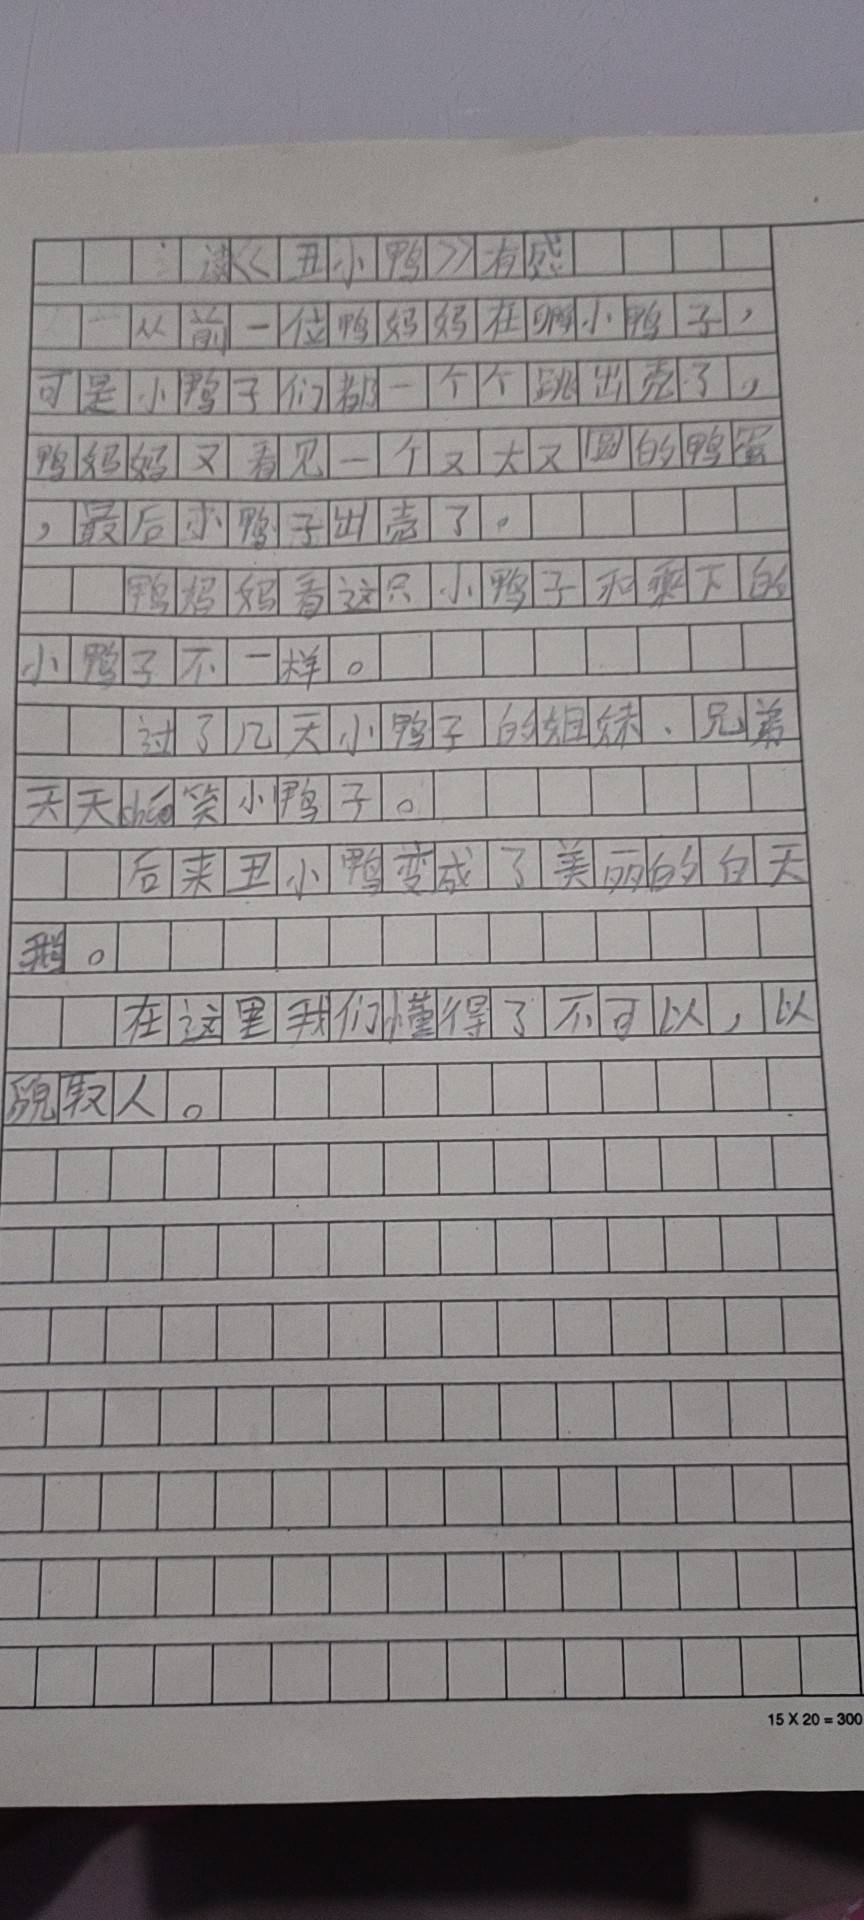 读《丑小鸭》有感
从前一位鸭妈妈在孵小鸭子，
可是小鸭子们都一个个跳出壳了，
鸭妈妈又看见一个又大又圆的鸭蛋
，最后小鸭子出壳了。
鸭妈妈看这只小鸭子和剩下的
小鸭子不一样。
过了几天小鸭子的姐妹、兄弟
天天cháo笑小鸭子。
后来丑小鸭变成了美丽的白天
鹅。
在这里我们懂得了不可以，以
貌取人。
15 X 20 = 300